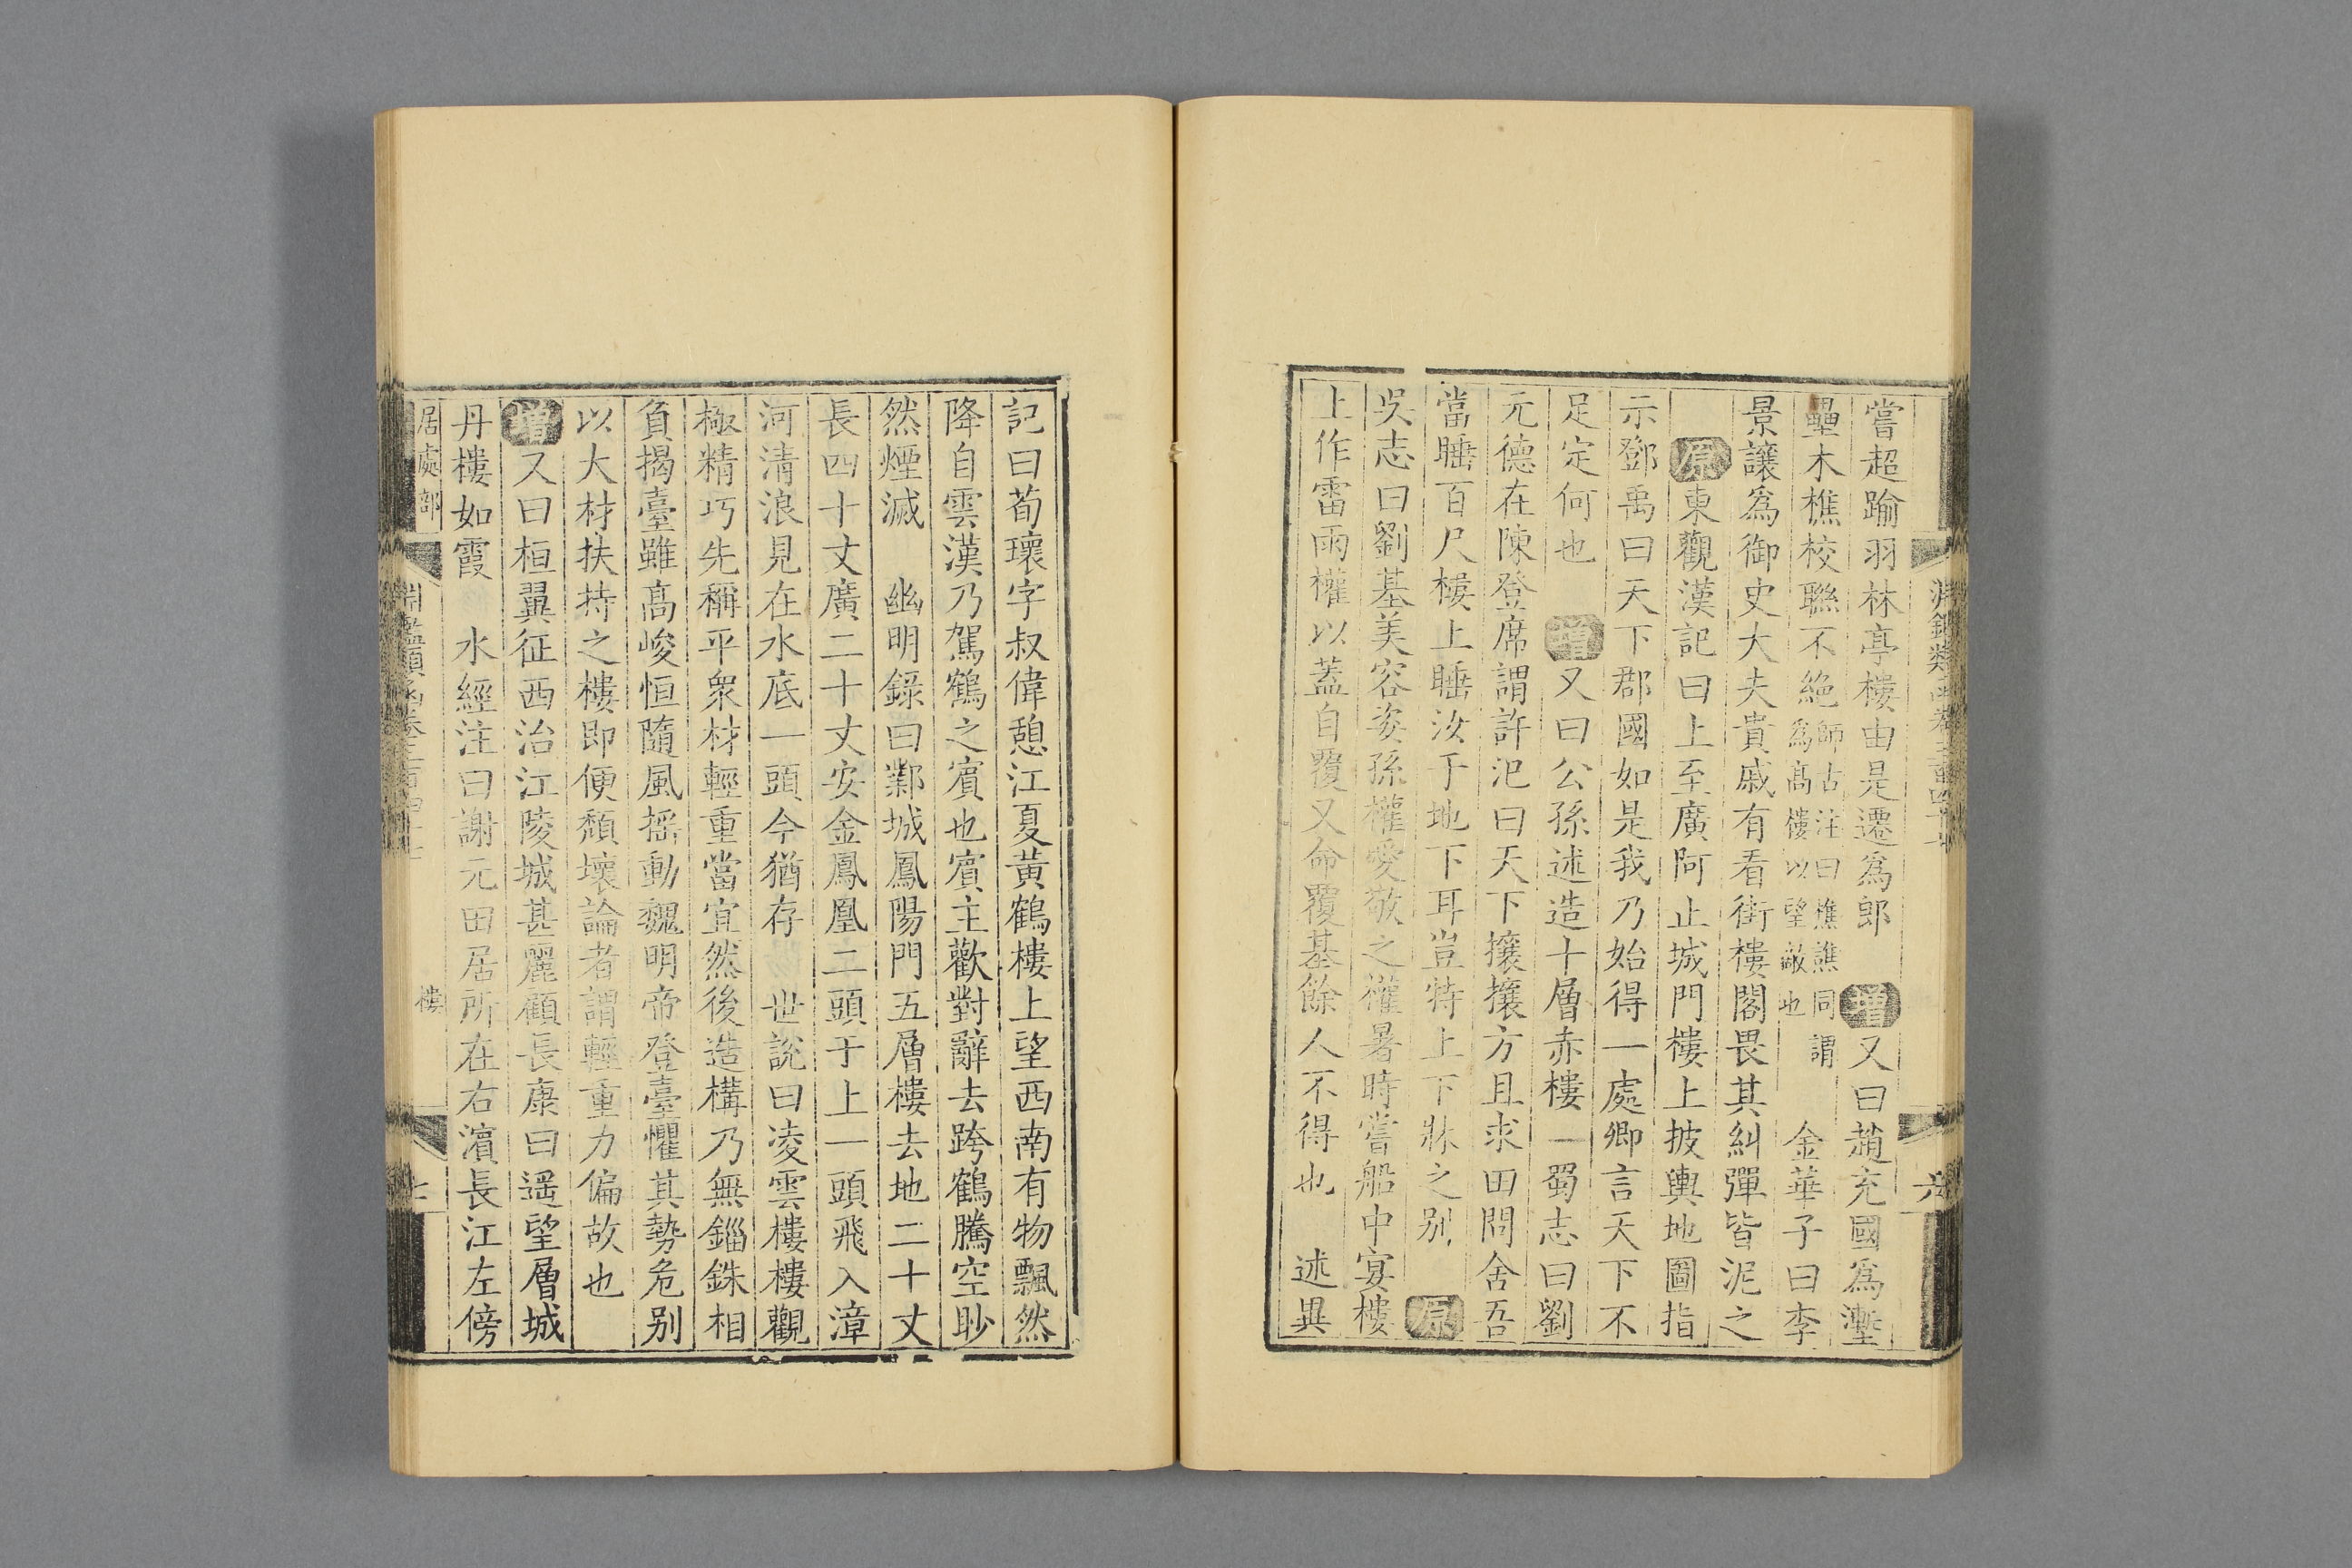 嘗超踰羽林亭樓由是遷爲郎　增又曰趙充國爲塹
壘木樵校聯不絶師古注曰樵譙同謂爲髙樓以望敵也　金華子曰李
景讓爲御史大夫貴戚有看街樓閣畏其糾彈皆泥之
原東觀漢記曰上至廣阿止城門樓上披輿地圖指
示鄧禹曰天下郡國如是我乃始得一處卿言天下不
足定何也　增又曰公孫述造十層赤樓　蜀志曰劉
元德在陳登席謂許汜曰天下攘攘方且求田問舍吾
當睡百尺樓上睡汝于地下耳豈特上下牀之别　原
吳志曰劉基美容姿孫權愛敬之權暑時嘗船中宴樓
上作雷雨權以蓋自覆又命覆基餘人不得也　述異
六
記曰荀瓌字叔偉憩江夏黃鶴樓上望西南有物飄然
降自雲漢乃駕鶴之賓也賓主歡對辭去跨鶴騰空眇
然煙滅　幽明錄曰鄴城鳳陽門五層樓去地二十丈
長四十丈廣二十丈安金鳳凰二頭于上一頭飛入漳
河清浪見在水底一頭今猶存　世說曰凌雲樓樓觀
極精巧先稱平衆材輕重當宜然後造構乃無錙銖相
負揭臺雖髙峻恒隨風搖動魏明帝登臺懼其勢危别
以大材扶持之樓即便頹壞論者謂輕重力偏故也
增又曰桓翼征西治江陵城甚麗顧長康曰遥望層城
丹樓如霞　水經注曰謝元田居所在右濱長江左傍
居處部
樓